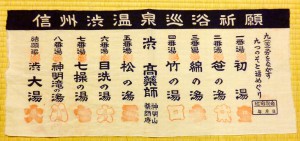 信州渋温泉巡浴祈願
九(苦)労をながす
九つのそと湯めぐり
一番湯 初湯
二番湯 笹の湯
三番湯 綿の湯
四番湯 竹の湯
渋高薬師
神明山
五番湯 松の湯
六番湯 目洗の湯
七番湯 七操の湯
八番湯 神明滝の湯
結願湯 渋大湯